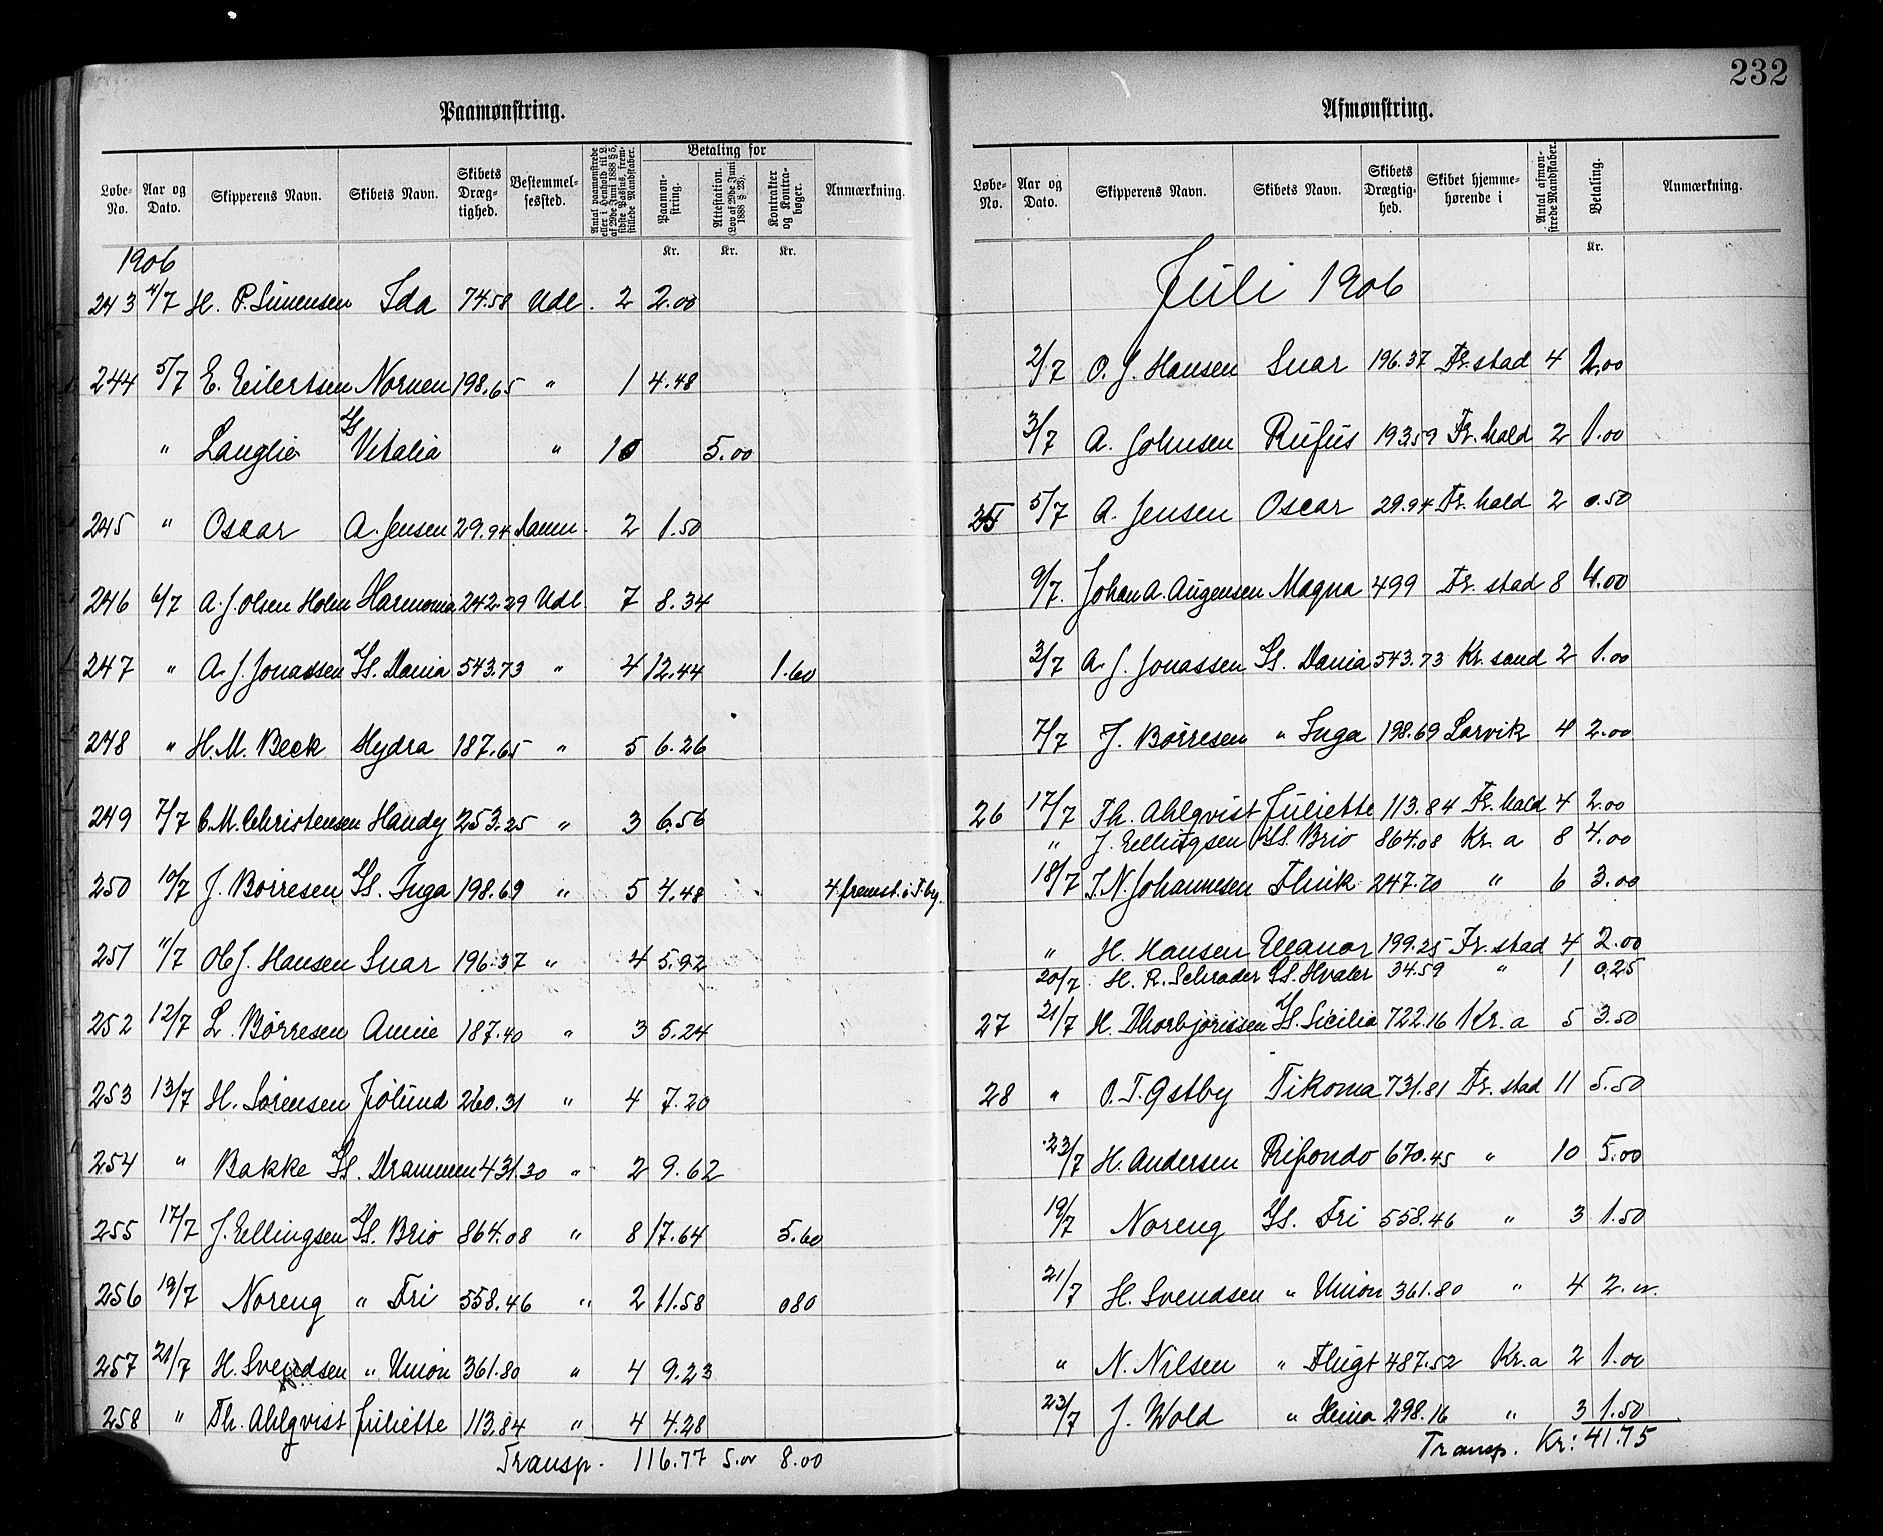 Paamønstring.
Løbe-No. | Aar og Dato. | Skipperens Navn. | Skibets Navn. | Skibets Dræg-tighed. | Bestemmel-sessted. | Antal paamønstrede eller i Henhold til L. af 29de Juni 1888 § 5, sidste Passus, frem-stillede Mandskaber. | Betaling for | Paamøn-string. | Attestation. (Lov af 29de Juni 1888 § 28). | Kontrakter og Kontra-bøger. | Anmærkning.
Kr. Kr. Kr.
1906
243 4/7 H. P. Simensen Ida 74.58 Udl. 2 2.00
244 5/7 E. Eilertsen Nornen 198.65 " 1 4.48
" Langlie Ds Vitalia " 10 5.00
245 " Oscar A. Jensen 29.94 Danm. 2 1.50
246 6/7 A. J. Olsen Holm Harmonia 242.29 Udl 7 8.34
247 " A. J. Jonassen Ds. Dania 543.73 " 4 12.44 1.60
248 " H. M. Beck Hydra 187.65 " 5 6.26
249 7/7 C. M. Christensen Handy 253.25 " 3 6.56
250 10/7 J. Børresen Ds. Inga 198.69 " 5 4.48 4 fremst. i T.by.
251 11/7 Ol J. Hansen Snar 196.37 " 4 5.92
252 12/7 L. Børresen Annie 187.40 " 3 5.24
253 13/7 H. Sørensen Jølund 260.31 " 4 7.20
254 " Bakke Ds. Drammen 431.30 " 2 9.62
255 17/7 J. Ellingsen Ds. Brio 864.08 " 8 17.64 5.60
256 19/7 Noreng " Fri 558.46 " 2 11.58 080
257 21/7 H. Svendsen " Union 361.80 " 4 9.23
258 " Th. Ahlqvist Juliette 113.84 " 4 4.28
Transp. 116.77 5.00 8.00
232
Afmønstring.
Løbe-No. | Aar og Dato. | Skipperens Navn. | Skibets Navn. | Skibets Drægtig-hed. | Skibet hjemme-hørende i | Antal afmøn-strede Mandskaber. | Betaling. | Anmærkning.
Kr.
Juli 1906
2/7 O. J. Hansen Snar 196.37 Fr. stad 4 2.00
3/7 A. Johnsen Rufus 193.59 Fr. hald 2 1.00
25 5/7 A. Jensen Oscar 29.94 Fr. hald 2 0.50
9/7. Johan A. Augensen Magna 499 Fr. stad 8 4.00
3/7 A. J. Jonassen Ds. Dania 543.73 Kr. sand 2 1.00
7/7 J. Børresen " Inga 198.69 Larvik 4 2.00
26 17/7 Th. Ahlqvist Juliette 113.84 Fr. hald 4 2.00
" J. Ellingsen Ds. Brio 864.08 Kr. a 8 4.00
18/7 T. N. Johannesen Flink 247.70 " 6 3.00
" H. Hansen Eleanor 199.25 Fr. stad 4 2.00
20/7 H. R. Schrader Ds. Hvaler 34.59 " 1 0.25
27 21/7 H. Thorbjørnsen Ds. Sicilia 722.16 Kr. a 5 3.50
28 " O. T. Østby Tikoma 731.81 Fr. stad 11 5.50
23/7 H. Andersen Rifondo 670.45 " 10 5.00
19/7 Noreng Ds. Fri 558.46 " 3 1.50
21/7 H. Svendsen " Union 361.80 " 4 2.00
" N. Nilsen " Flugt 487.52 Kr. a 2 1.00
23/7 J. Wold " Heina 298.16 " 3 1.50
Transp. Kr: 41.75